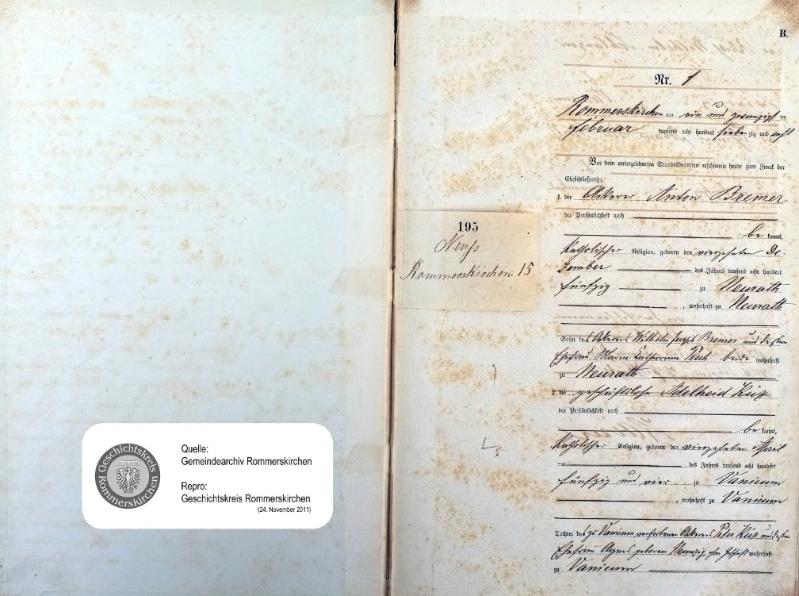 Geschichtskreis
Rommerskirchen
Quelle:
Gemeindearchiv Rommerskirchen
Repro:
Geschichtskreis Rommerskirchen
(24. November 2011)
195
Neuß
Rommerskirchen 15
B.
Nr. 1
Rommerskirchen am
Februar tausend acht hundert siebenzig und acht
Vor dem unterzeichneten Standesbeamten erschienen heute zum Zweck der
Eheschließung:
1. der Ackerer Anton Bremer
der Persönlichkeit nach
be kannt,
katholischer Religion, geboren den vierzehnten De-
zember des Jahres tausend acht hundert
fünfzig zu Neurath
, wohnhaft zu Neurath
Sohn des Ackerers Wilhelm Joseph Bremer und dessen
Ehefrau Maria Catharina beide wohnhaft
zu Neurath
2. die geschäftslose Adelheid
der Persönlichkeit nach
be kannt,
katholischer Religion, geboren den vierzehnten April
des Jahres tausend acht hundert
fünfzig und vier zu Vanicum
, wohnhaft zu Vanicum
Tochter des zu Vanicum verstorbenen Ackerers Peter und dessen
Ehefrau Agnes geborene ohne Geschäft wohnhaft
zu Vanicum